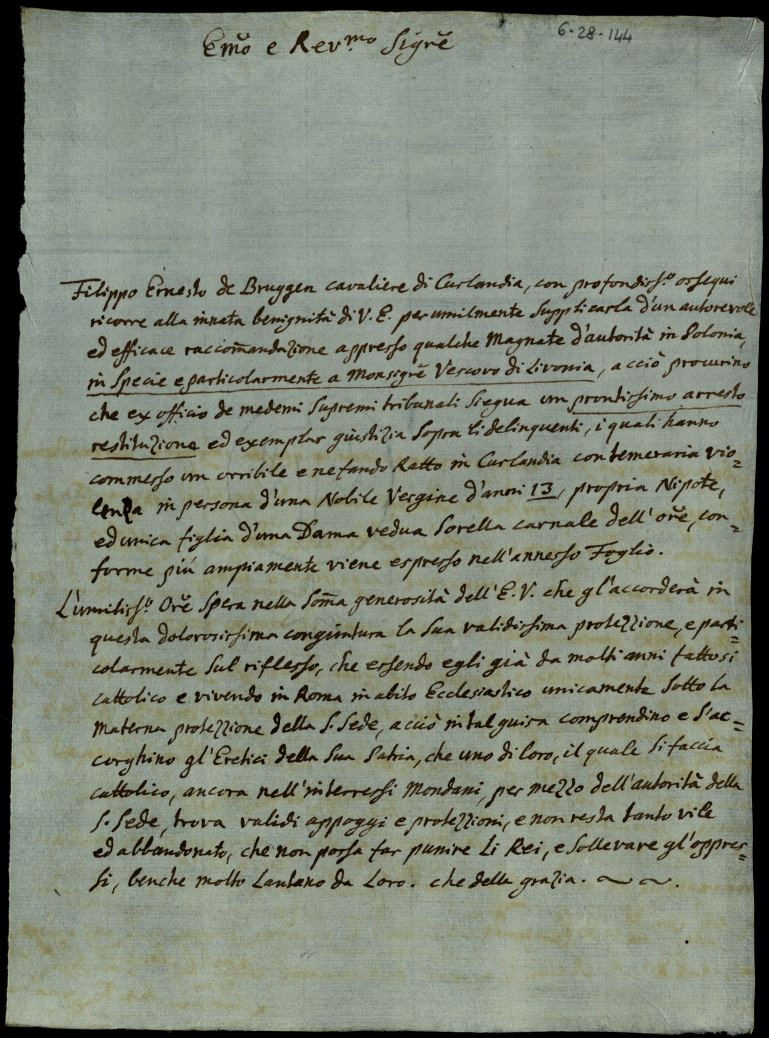 6-28-144
Em̃o e Rev.mo Sigr̃e
Filippo Ernesto de Bruggen cavaliere di Curlandia, con profondiss.o ossequi
ricorre alla innata benignità di V. E. per umilmente supplicarla d'un autorevole
ed efficace raccom̃andazione appresso qualche Magnate d'autorità in Polonia,
in specie e particolarmente a Monsigr̃e Vescovo di Livonia, acciò procurino
che ex officio de medemi supremi tribunali siegua un prontissimo arresto
restituzione ed exemplar giustizia sopra li delinquenti, i quali hanno
commesso un orribile e nefando Ratto in Curlandia con temeraria vio=
lenza in persona d'una Nobile Vergine d'anni 13, propria Nipote,
ed unica figlia d'una Dama vedua sorella carnale dell'or̃e, con=
forme più ampiamente viene espresso nell'annesso Foglio.
L'umiliss.o Or̃e spera nella som̃a generosità dell'E. V. che gl'accorderà in
questa dolorosissima congiuntura la sua validissima protezzione, e parti=
colarmente sul riflesso, che essendo egli già da molti anni fattosi
cattolico e vivendo in Roma in abito Ecclesiastico unicamente sotto la
materna protezzione della S. Sede, acciò in tal guisa comprendino e s'ac=
corghino gl'Eretici della sua Patria, che uno di loro, il quale si faccia
cattolico, ancora nell'interressi Mondani, per mezzo dell'autorità della
S. Sede, trova validi appoggi e protezzioni, e non resta tanto vile
ed abbandonato, che non possa far punire li Rei, e sollevare gl'oppres=
si, benche molto lantano da Loro. che della grazia.